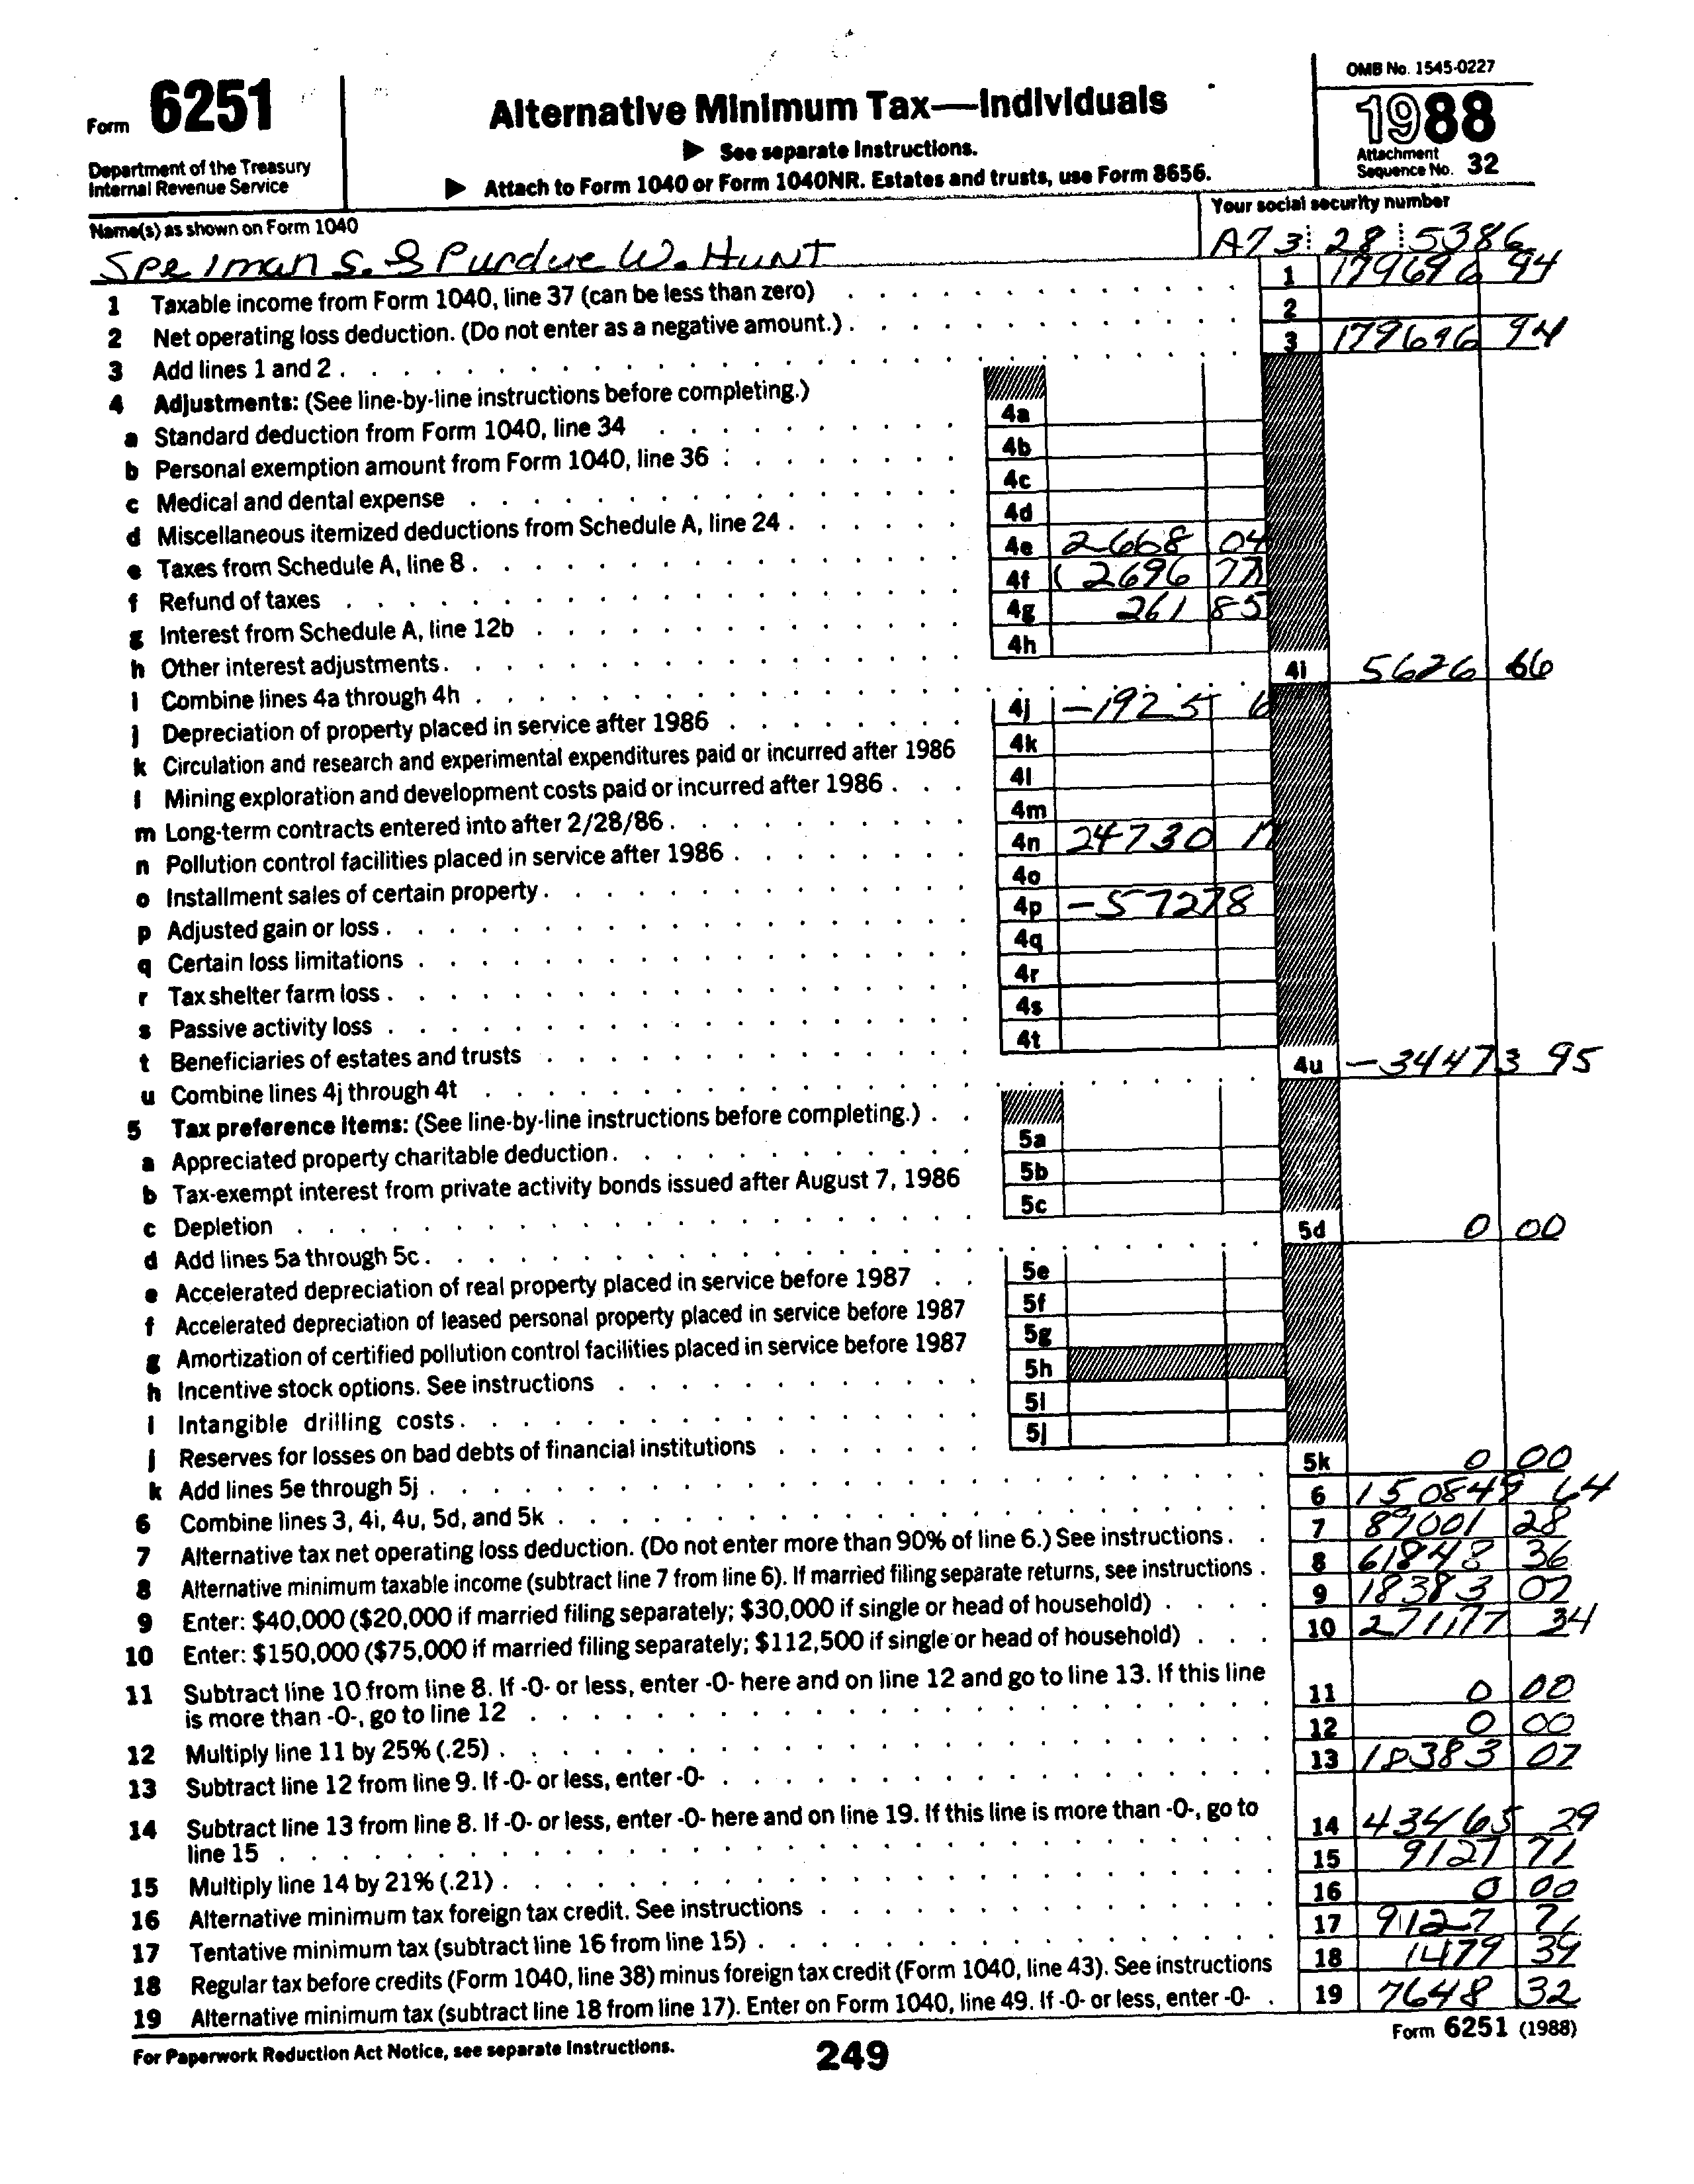 OMB No. 1545-0227
Form 6251
Alternative Minimum Tax—Individuals
1988
▶ See separate Instructions.
▶ Attach to Form 1040 or Form 1040NR. Estates and trusts, use Form 8656.
Department of the Treasury
Internal Revenue Service
Attachment
Sequence No. 32
Name(s) as shown on Form 1040
Your social security number
Spelman S. & Purdue W. Hunt A73 28 5386
1 Taxable income from Form 1040, line 37 (can be less than zero) 1 179696 94
2 Net operating loss deduction. (Do not enter as a negative amount.) 2
3 Add lines 1 and 2 3 179696 94
4 Adjustments: (See line-by-line instructions before completing.)
a Standard deduction from Form 1040, line 34 4a
b Personal exemption amount from Form 1040, line 36 4b
c Medical and dental expense 4c
d Miscellaneous itemized deductions from Schedule A, line 24 4d
e Taxes from Schedule A, line 8 4e 2668 04
f Refund of taxes 4f (2696 77)
g Interest from Schedule A, line 12b 4g 261 85
h Other interest adjustments 4h
i Combine lines 4a through 4h 4i 5626 66
j Depreciation of property placed in service after 1986 4j -1925 6
k Circulation and research and experimental expenditures paid or incurred after 1986 4k
l Mining exploration and development costs paid or incurred after 1986 4l
m Long-term contracts entered into after 2/28/86 4m
n Pollution control facilities placed in service after 1986 4n 24730 17
o Installment sales of certain property 4o
p Adjusted gain or loss 4p -57278
q Certain loss limitations 4q
r Tax shelter farm loss 4r
s Passive activity loss 4s
t Beneficiaries of estates and trusts 4t
u Combine lines 4j through 4t 4u -34473 95
5 Tax preference items: (See line-by-line instructions before completing.)
a Appreciated property charitable deduction 5a
b Tax-exempt interest from private activity bonds issued after August 7, 1986 5b
c Depletion 5c
d Add lines 5a through 5c 5d 0 00
e Accelerated depreciation of real property placed in service before 1987 5e
f Accelerated depreciation of leased personal property placed in service before 1987 5f
g Amortization of certified pollution control facilities placed in service before 1987 5g
h Incentive stock options. See instructions 5h
i Intangible drilling costs 5i
j Reserves for losses on bad debts of financial institutions 5j
k Add lines 5e through 5j 5k 0 00
6 Combine lines 3, 4i, 4u, 5d, and 5k 6 150849 64
7 Alternative tax net operating loss deduction. (Do not enter more than 90% of line 6.) See instructions 7 89001 28
8 Alternative minimum taxable income (subtract line 7 from line 6). If married filing separate returns, see instructions 8 61848 36
9 Enter: $40,000 ($20,000 if married filing separately; $30,000 if single or head of household) 9 18383 07
10 Enter: $150,000 ($75,000 if married filing separately; $112,500 if single or head of household) 10 271177 34
11 Subtract line 10 from line 8. If -0- or less, enter -0- here and on line 12 and go to line 13. If this line
is more than -0-, go to line 12 11 0 00
12 Multiply line 11 by 25% (.25) 12 0 00
13 Subtract line 12 from line 9. If -0- or less, enter -0- 13 18383 07
14 Subtract line 13 from line 8. If -0- or less, enter -0- here and on line 19. If this line is more than -0-, go to
line 15 14 43465 29
15 Multiply line 14 by 21% (.21) 15 9127 71
16 Alternative minimum tax foreign tax credit. See instructions 16 0 00
17 Tentative minimum tax (subtract line 16 from line 15) 17 9127 71
18 Regular tax before credits (Form 1040, line 38) minus foreign tax credit (Form 1040, line 43). See instructions 18 1479 39
19 Alternative minimum tax (subtract line 18 from line 17). Enter on Form 1040, line 49. If -0- or less, enter -0- 19 7648 32
For Paperwork Reduction Act Notice, see separate Instructions.
249
Form 6251 (1988)